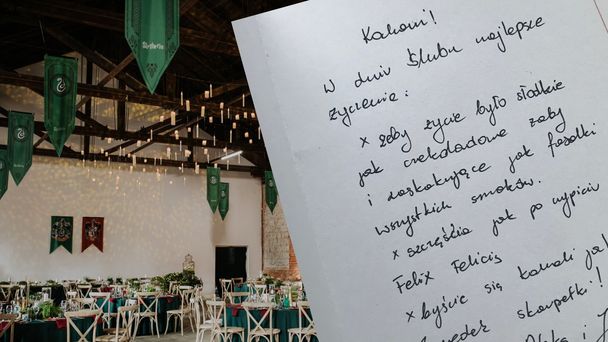 Slytherin
Kochani!
W dniu ślubu najlepsze
życzenia:
x żeby życie było słodkie
jak czekoladowe żaby
i zaskakujące jak fasolki
wszystkich smaków.
x szczęścia jak po wypiciu
Felix Felicis
x byście się kochali jak
skarpetki!
i